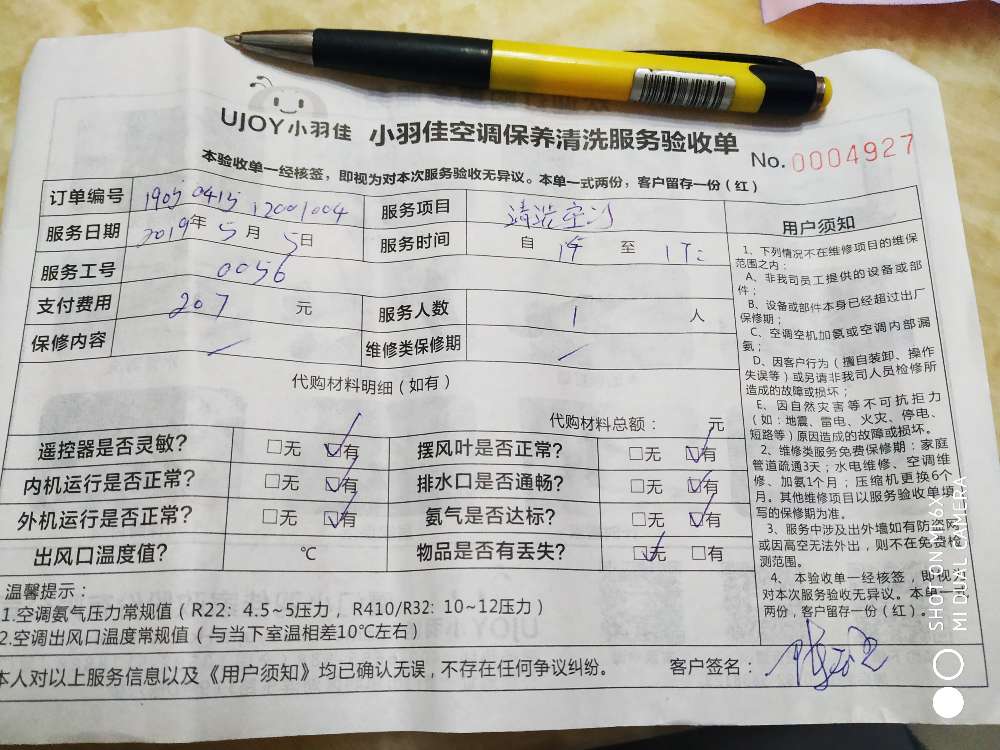 UJOY小羽佳 小羽佳空调保养清洗服务验收单
No. 0004927
本验收单一经核签，即视为对本次服务验收无异议。本单一式两份，客户留存一份（红）
订单编号 服务项目 清洗空
服务日期 2019年5月5日 服务时间 自 至 17:
服务工号 0056
支付费用 207 元 服务人数 1 人
保修内容 / 维修类保修期 /
代购材料明细（如有）
代购材料总额： 元
遥控器是否灵敏? □无 ☑有 摆风叶是否正常? □无 ☑有
内机运行是否正常? □无 ☑有 排水口是否通畅? □无 ☑有
外机运行是否正常? □无 ☑有 氨气是否达标? □无 ☑有
出风口温度值? ℃ 物品是否有丢失? ☑无 □有
温馨提示：
1.空调氨气压力常规值（R22：4.5~5压力，R410/R32：10~12压力）
2.空调出风口温度常规值（与当下室温相差10℃左右）
本人对以上服务信息以及《用户须知》均已确认无误，不存在任何争议纠纷。 客户签名：
用户须知
1、下列情况不在维修项目的维保
范围之内：
A、非我司员工提供的设备或部
件；
B、设备或部件本身已经超过出厂
保修期；
C、空调空机加氨或空调内部漏
氨；
D、因客户行为（擅自装卸、操作
失误等）或另请非我司人员检修所
造成的故障或损坏；
E、因自然灾害等不可抗拒力
（如：地震、雷电、火灾、停电、
短路等）原因造成的故障或损坏。
2、维修类服务免费保修期：家庭
管道疏通3天；水电维修、空调维
修、加氨1个月；压缩机更换6个
月。其他维修项目以服务验收单填
写的保修期为准。
3、服务中涉及出外墙如有防盗网
或因高空无法外出，则不在免费检
测范围。
4、本验收单一经核签，即视为
对本次服务验收无异议。本单一式
两份，客户留存一份（红）。
SHOT ON MI 6X
MI DUAL CAMERA